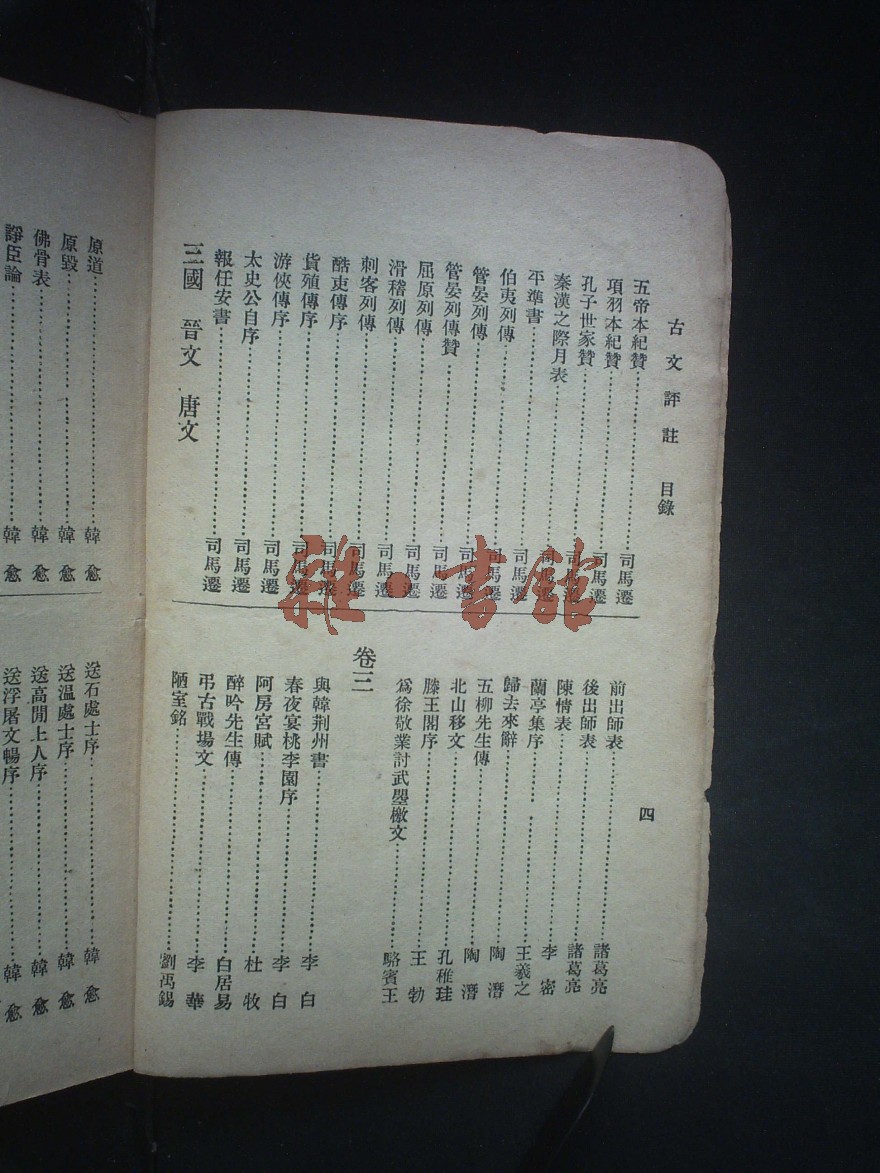 古文評註 目錄
四
五帝本紀贊 司馬遷
項羽本紀贊 司馬遷
孔子世家贊 司馬遷
秦漢之際月表 司馬遷
平準書 司馬遷
伯夷列傳 司馬遷
管晏列傳 司馬遷
管晏列傳贊 司馬遷
屈原列傳 司馬遷
滑稽列傳 司馬遷
刺客列傳 司馬遷
酷吏傳序 司馬遷
貨殖傳序 司馬遷
游俠傳序 司馬遷
太史公自序 司馬遷
報任安書 司馬遷
三國 晉文 唐文
前出師表 諸葛亮
後出師表 諸葛亮
陳情表 李密
蘭亭集序 王羲之
歸去來辭 陶潛
五柳先生傳 陶潛
北山移文 孔稚珪
滕王閣序 王勃
爲徐敬業討武曌檄文 駱賓王
卷三
與韓荆州書 李白
春夜宴桃李園序 李白
阿房宮賦 杜牧
醉吟先生傳 白居易
弔古戰場文 李華
陋室銘 劉禹錫
原道 韓愈
原毀 韓愈
佛骨表 韓愈
諍臣論 韓愈
送石處士序 韓愈
送溫處士序 韓愈
送高閒上人序 韓愈
送浮屠文暢序 韓愈
雜·書館